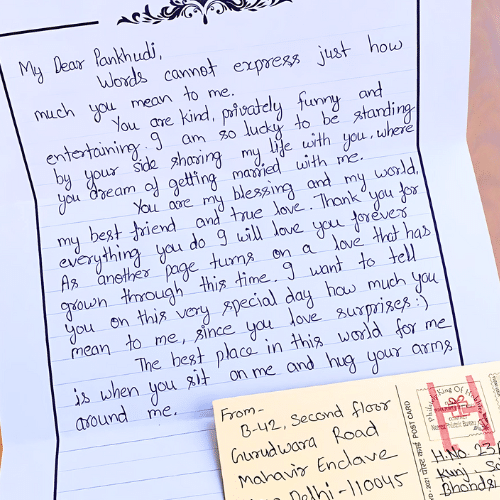 My Dear Pankhudi,
Words cannot express just how
much you mean to me.
You are kind, privately funny and
entertaining. I am so lucky to be standing
by your side sharing my life with you, where
you dream of getting married with me.
You are my blessing and my world,
my best friend and true love. Thank you for
everything you do I will love you forever
As another page turns on a love that has
grown through this time. I want to tell
you on this very special day how much you
mean to me, since you love surprises :)
The best place in this world for me
is when you sit on me and hug your arms
around me.
From-
B-42, Second floor
Gurudwara Road
Mahavir Enclave
Delhi-110045
POST CARD
King Of
H.No.
Kunj